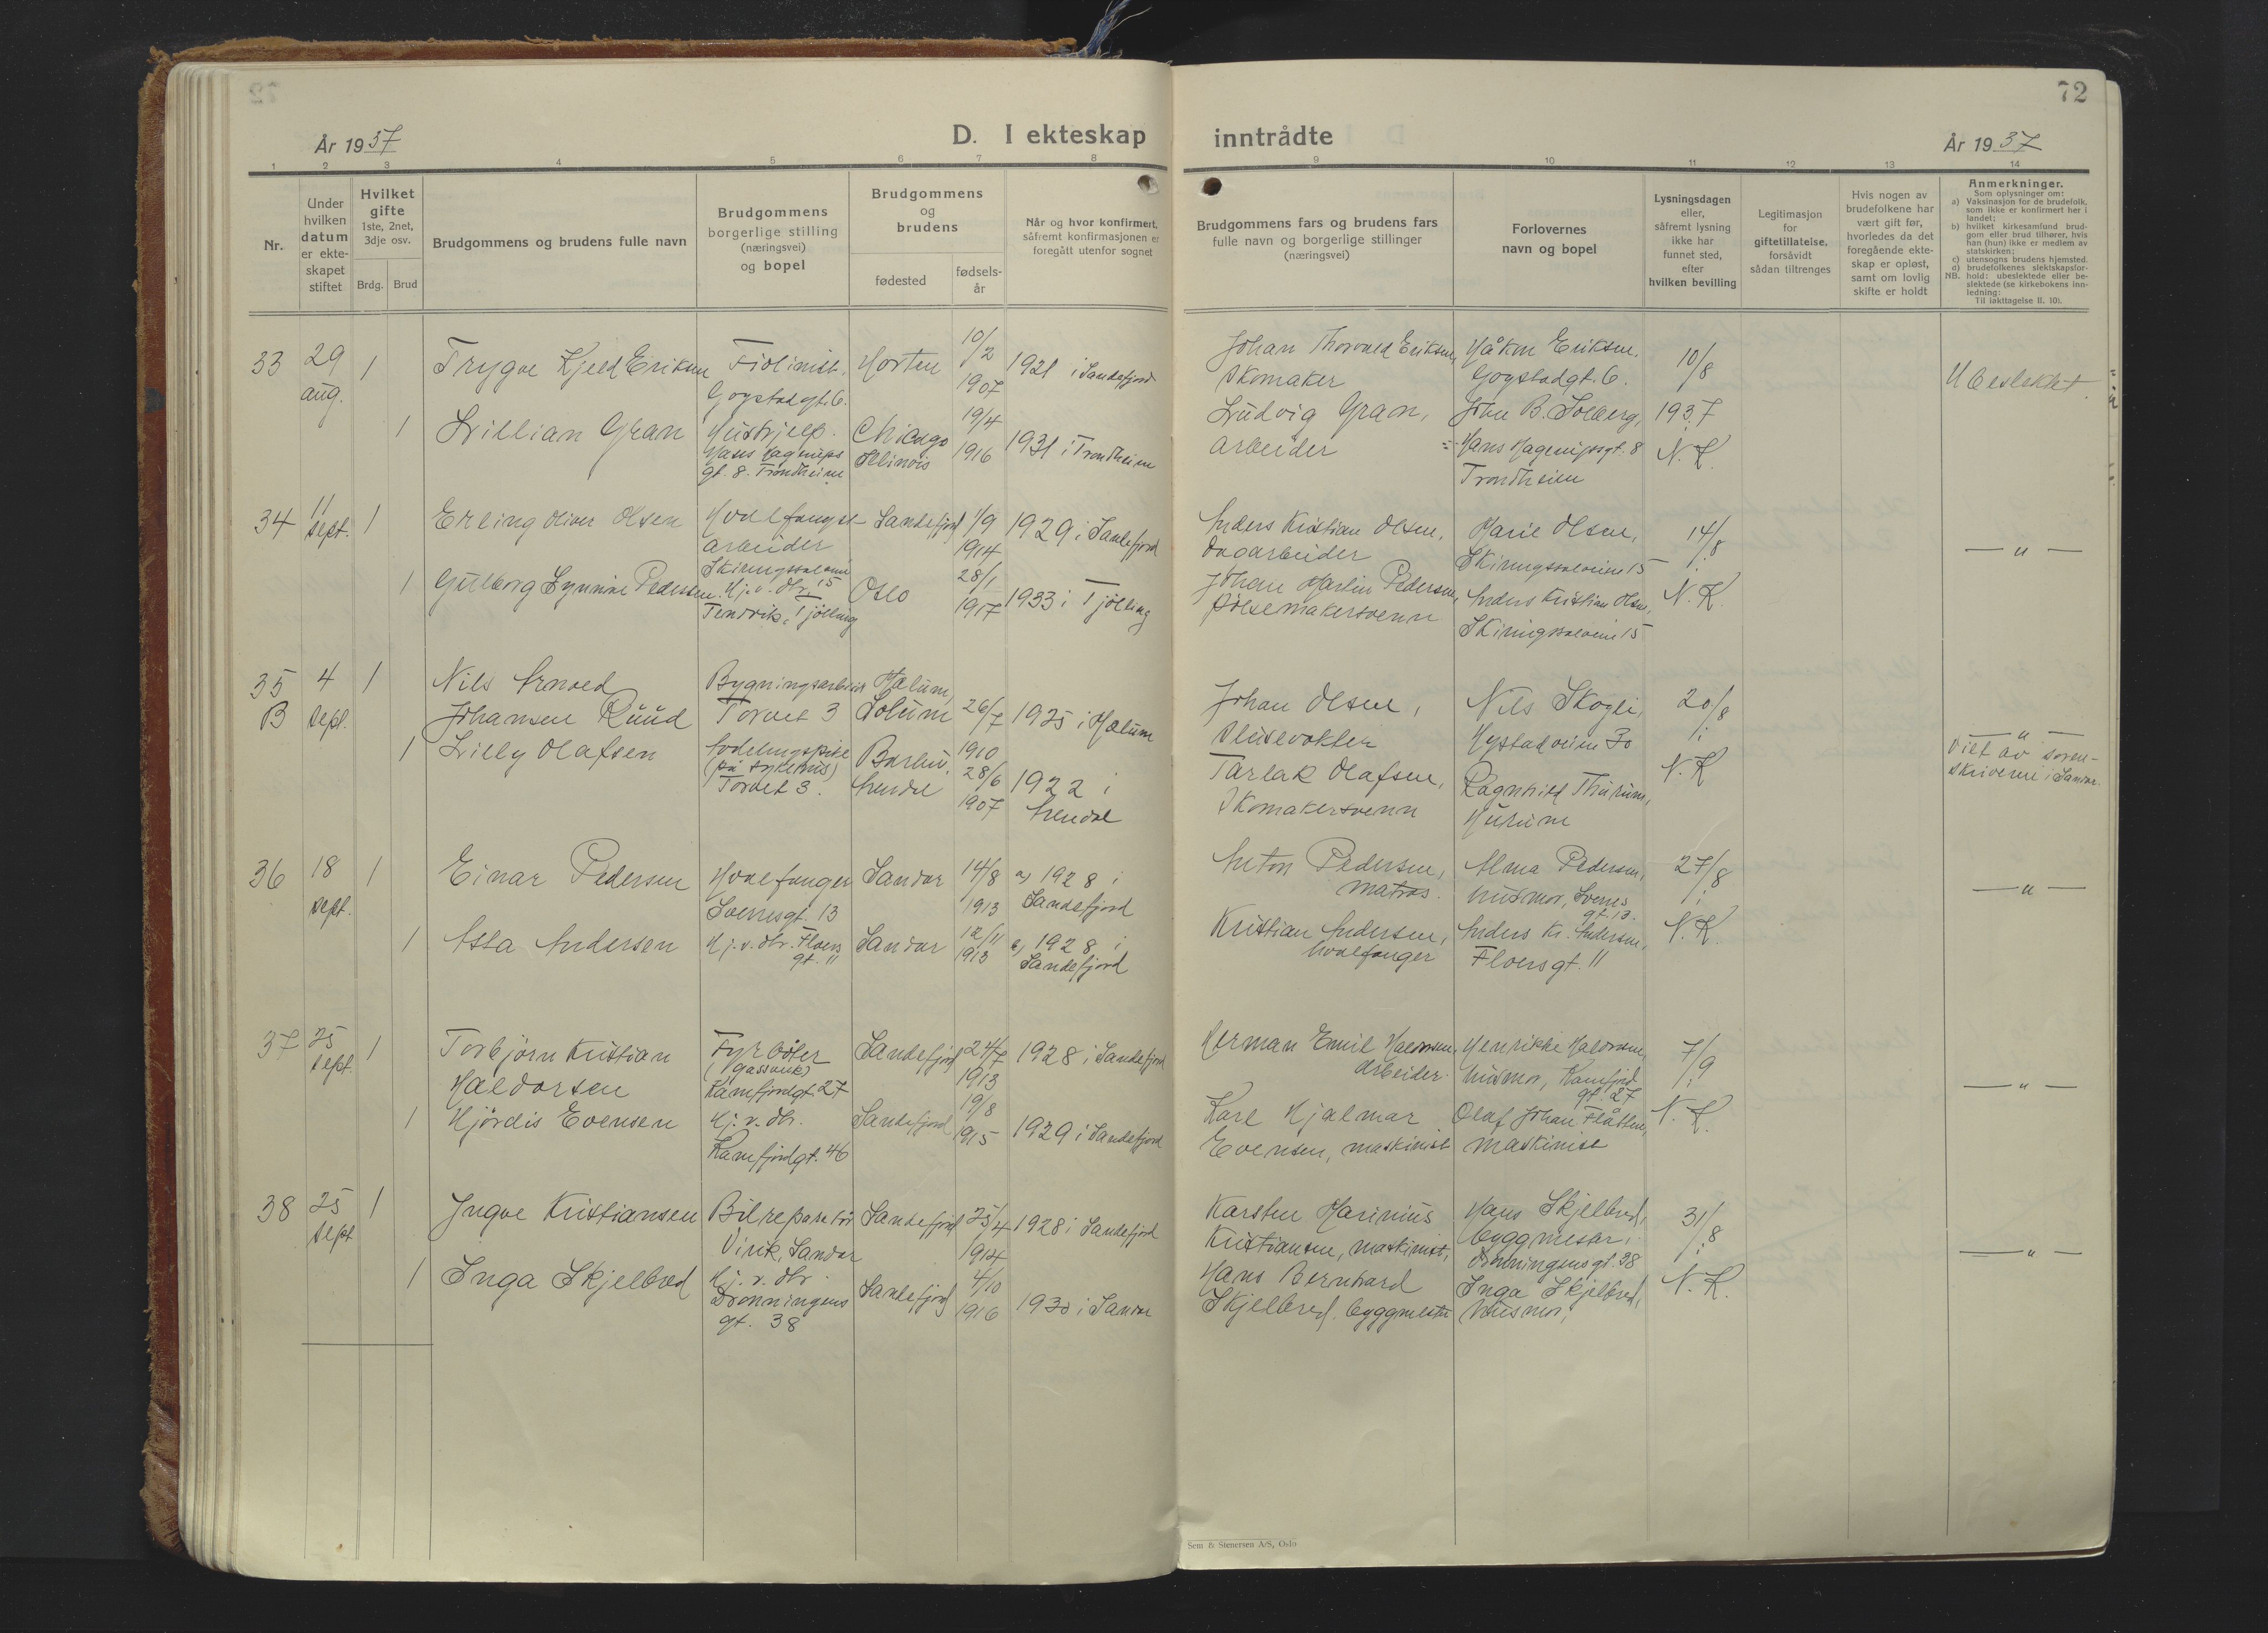 72
År 1937
D. I ekteskap inntrådte
År 1937
1 2 3 4 5 6 7 8 9 10 11 12 13 14
Nr.
Under
hvilken
datum
er ekte-
skapet
stiftet
Hvilket
gifte
1ste, 2net,
3dje osv.
Brdg. Brud
Brudgommens og brudens fulle navn
Brudgommens
borgerlige stilling
(næringsvei)
og bopel
Brudgommens
og
brudens
fødested
fødsels-
år
Når og hvor konfirmert,
såfremt konfirmasjonen er
foregått utenfor sognet
Brudgommens fars og brudens fars
fulle navn og borgerlige stillinger
(næringsvei)
Forlovernes
navn og bopel
Lysningsdagen
eller,
såfremt lysning
ikke har
funnet sted,
efter
hvilken bevilling
Legitimasjon
for
giftetillatelse,
forsåvidt
sådan tiltrenges
Hvis nogen av
brudefolkene har
vært gift før,
hvorledes da det
foregående ekte-
skap er opløst,
samt om lovlig
skifte er holdt
Anmerkninger.
Som oplysninger om:
a) Vaksinasjon for de brudefolk,
som ikke er konfirmert her i
landet;
b) hvilket kirkesamfund brud-
gom eller brud tilhører, hvis
han (hun) ikke er medlem av
statskirken;
c) utensogns brudens hjemsted.
d) brudefolkenes slektskapsfor-
NB. hold: ubeslektede eller be-
slektede (se kirkebokens inn-
ledning:
Til iakttagelse II. 10).
33
29
aug.
1
Trygve Kjell Eriksen
Fiolinist.
Gogstadgt. 6.
Horten
10/2
1907
1921 i Sandefjord
Johan Thorvald Eriksen,
Skomaker
Håkon Eriksen.
Gogstadgt. 6.
10/8
1937
N.K.
Ubeslektet.
1
Lillian Gran
Hushjelp.
Hans Hagerups
gt. 8. Trondheim
Chicago
Illinois
19/4
1916
1931 i Trondheim
Ludvig Gran,
arbeider
John B. Solberg,
Hans Hagerupsgt. 8
Trondheim
34
11
sept.
1
Erling Oliver Olsen
Hvalfangst-
arbeider
Skiringssalveien
15
Sandefjord
1/9
1914
1929 i Sandefjord
Anders Kristian Olsen,
dagarbeider
Marie Olsen,
Skiringssalveien 15
14/8
N.K.
— " —
1
Gulborg Synnøve Pedersen
Hj. v. dtr.
Tenvik, Tjølling
Oslo
28/1
1917
1933 i Tjølling
Johan Martin Pedersen,
pølsemakersvenn
Anders Kristian Olsen,
Skiringssalveien 15
35
B
4
sept.
1
Nils Arnold
Johansen Ruud
Bygningsarbeider
Torvet 3
Mælum,
Solum
26/7
1910
1925 i Mælum
Johan Olsen,
Slusevokter
Nils Skogli,
Nystadveien 30
20/8
N.K.
— " —
Viet av soren-
skriveren i Sandar.
1
Lilly Olafsen
Avdelingspike
(på sykehus)
Torvet 3.
Barbu,
Arendal
28/6
1907
1922 i
Arendal
Tarlak Olafsen,
Skomakersvenn
Ragnhild Thurum,
Hurum
36
18
sept.
1
Einar Pedersen
Hvalfanger
Sverresgt. 13
Sandar
14/8
1913
a) 1928 i
Sandefjord
Anton Pedersen,
matros.
Alma Pedersen,
husmor, Sverres
gt. 13.
27/8
N.K.
— " —
1
Asta Andersen
Hj. v. dtr. Floers
gt. 11
Sandar
12/11
1913
b) 1928 i
Sandefjord
Kristian Andersen,
hvalfanger
Anders Kr. Andersen,
Floersgt. 11
37
25
sept.
1
Torbjørn Kristian
Haldorsen
Fyrbøter
(gassverk)
Kamfjordgt. 27
Sandefjord
24/7
1913
1928 i Sandefjord
Herman Emil Haldorsen,
arbeider.
Henrikke Haldorsen,
husmor, Kamfjord
gt. 27
7/9
N.K.
— " —
1
Hjørdis Evensen
Hj. v. dtr.
Kamfjordgt. 46
Sandefjord
19/8
1915
1929 i Sandefjord
Karl Hjalmar
Evensen, maskinist
Olaf Johan Flåtten,
maskinist
38
25
sept
1
Yngve Kristiansen
Bilreparatør
Virik, Sandar
Sandefjord
25/4
1914
1928 i Sandefjord
Karsten Marinius
Kristiansen, maskinist,
Hans Skjelbred,
byggmester,
Dronningensgt. 38
31/8
N.K.
— " —
1
Inga Skjelbred
Hj. v. dtr.
Dronningens
gt. 38
Sandefjord
4/10
1916
1930 i Sandar
Hans Bernhard
Skjelbred, byggmester
Inga Skjelbred,
husmor,
Sem & Stenersen A/S, Oslo